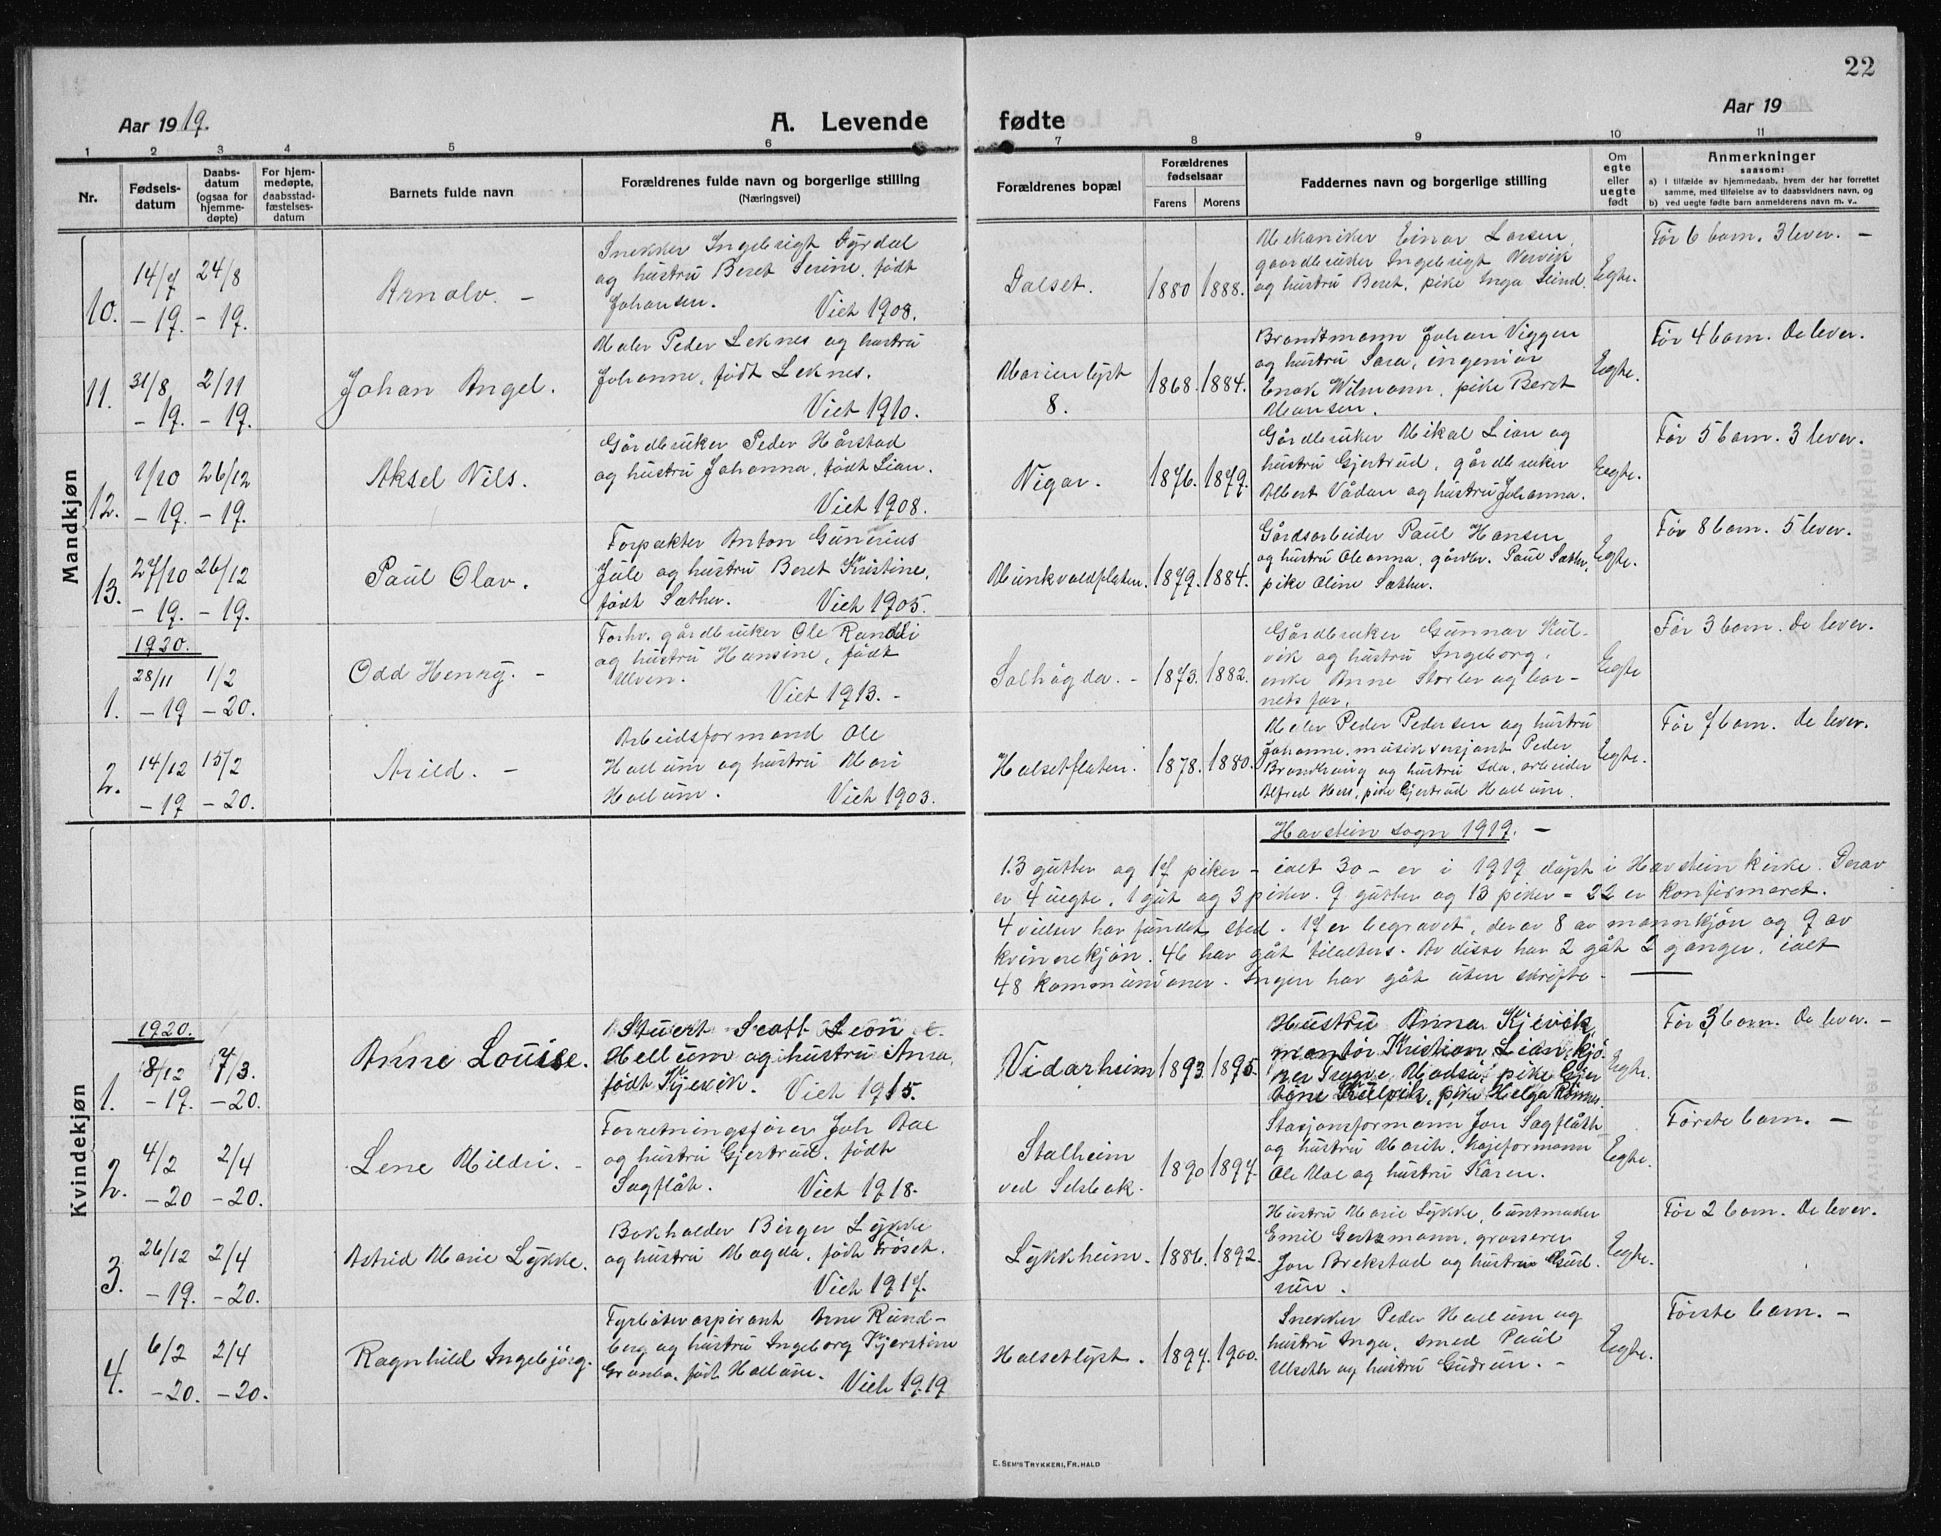 22
Aar 1919.
A. Levende
fødte
Aar 19
1 2 3 4 5 6 7 8 9 10 11
Nr.
Fødsels-
datum
Daabs-
datum
(ogsaa for
hjemme-
døpte)
For hjem-
medøpte,
daabsstad-
fæstelses-
datum
Barnets fulde navn
Forældrenes fulde navn og borgerlige stilling
(Næringsvei)
Forældrenes bopæl
Forældrenes
fødselsaar
Farens Morens
Faddernes navn og borgerlige stilling
Om
egte
eller
uegte
født
Anmerkninger
saasom:
a) I tilfælde av hjemmedaab, hvem der har forrettet
samme, med tilføielse av to daabsvidners navn, og
b) ved uegte fødte barn anmelderens navn m. v..
Mandkjøn
10.
14/7
- 19.
24/8
- 19.
Arnolv. -
Snekker Ingebrigt Fyrdal
og hustru Beret Serine, født
Johansen. Viet 1908.
Dalset.
1880 1888.
Mekaniker Einar Larsen,
gaardbruker Ingebrigt Nervik
og hustru Beret, pike Inga Lund.
Egte.
Før 6 barn. 3 lever. -
11.
31/8
- 19.
2/11
- 19.
Johan Angel.
Maler Peder Leknes og hustru
Johanne, født Leknes.
Viet 1910.
Marienlyst
8.
1868. 1884.
Brandtmann Johan Viggen
og hustru Sara, ingeniør
Enok Wilmann, pike Beret
Hansen.
Egte.
Før 4 barn. De lever.
12.
1/10
- 19.
26/12
- 19.
Aksel Nils.
Gårdbruker Peder Hårstad
og hustru Johanna, født Lian.
Viet 1908.
Nigar.
1876. 1879.
Gårdbruker Mikal Lian og
hustru Gjertrud, gårdbruker
Albert Vådan og hustru Johanna.
Egte.
Før 5 barn. 3 lever.
13.
27/10
- 19.
26/12
- 19.
Paul Olav.
Forpakter Anton Gunerius
Jule og hustru Beret Kristine,
født Sæther. Viet 1905.
Munkvoldplaten.
1879. 1884.
Gårdsarbeider Paul Hansen
og hustru Oleanna, gårdbr. Paul Sæther,
pike Oline Sæther.
Egte.
Før 8 barn. 5 lever.
1920.
1.
28/11
- 19
1/2
- 20.
Odd Henry. -
Forhv. gårdbruker Ole Randli
og hustru Hansine, født
Ulven. Viet 1913. -
Solhøgda. -
1873. 1882.
Gårdbruker Gunnar Kul-
vik og hustru Ingeborg,
enke Anne Storler og bar-
nets far.
Egte
Før 3 barn. De lever.
2.
14/12
- 19
15/2
- 20.
Arild. -
Arbeidsformand Ole
Hallum og hustru Mari
Hallum. Viet 1903.
Halsetflaten.
1878. 1880.
Maler Peder Pedersen og hustru
Johanne, musikersjant Peder
Brandhaug og hustru Ida, arbeider
Alfred Hers, pike Gjertrud Hallum.
Egte.
Før 7 barn. De lever.
Havstein sogn 1919. -
13 gutter og 17 piker - ialt 30 - er i 1919 døpt i Havstein kirke. Derav
er 4 uegte, 1 gut og 3 piker. 9 gutter og 13 piker = 22 er konfirmeret.
4 vielser har fundet sted. 17 er begravet, derav 8 av mannkjøn og 9 av
kvinnekjøn. 46 har gåt tilalters. Av disse har 2 gåt 2 ganger, ialt
48 kommunioner. Ingen har gåt uten skrifte.
Kvindekjøn
1920.
1.
8/12
- 19.
7/3.
- 20.
Anne Louise.
Stuert Scott Leon
Hellum og hustru Anna,
født Kjevik. Viet 1915.
Vidarheim
1893. 1895.
Hustru Anna Kjevik,
montør Kristian Lian, kjø-
Kulvik, pike Helga
Egte.
Før 3 barn. De lever. -
2.
4/2
- 20
2/4
- 20.
Lene Mildri. -
Forretningsfører Joh Aae
og hustru Gjertrud, født
Sagflåt. Viet 1918.
Stalheim
ved Selsbak.
1890 1897.
Stasjonsformann Jon Sagflåth
og hustru Marit, høieformann
Ole Moe og hustru Karen.
Egte.
Første barn. -
3.
26/12
- 19.
2/4
- 20.
Astrid Marie Lykke.
Bokholder Birger Lykke
og hustru Magda, født Frøset.
Viet 1917.
Lykkheim.
1886. 1892.
Hustru Marie Lykke, buntmaker
Emil Gertzmann, grosserer
Jon Brekstad og hustru Gud-
run.
Egte.
Før 2 barn. De lever.
4.
6/2
- 20.
2/4
- 20.
Ragnhild Ingebjørg.
Fyrbøteraspirant Arne Rund-
berg og hustru Ingeborg Kjerstine
Granbo, født Hallum. Viet 1919
Halsetlyst.
1897. 1900.
Snekker Peder Hallum og
hustru Inga, smed Paul
Ulseth og hustru Gudrun. -
Egte.
Første barn. -
E. SEM'S TRYKKERI, FR. HALD